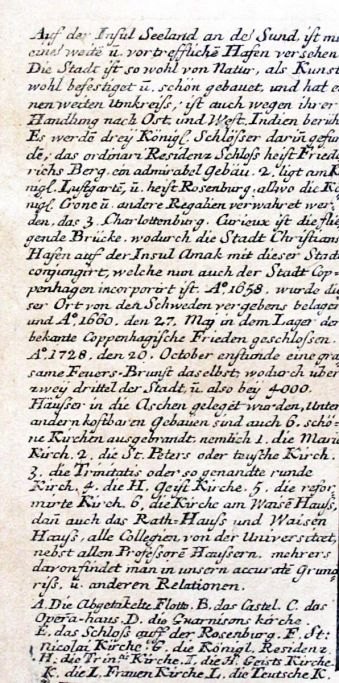 Auf der Insul Seeland an de Sund, ist m
eine weite ū. vortreffliche Hafen versehen
Die Stadt ist so wohl von Natur, als Kunst
wohl befestiget ū. schön gebauet, und hat e
nen weiten Umkreiss, ist auch wegen ihrer
Handlung nach Ost. und West. Indien berüh
Es werdē drey Königl. Schlösser darin gefun
de, das ordinari Residenz Schloss heist Fried
richs Berg. ein admirabel Gebäu. 2. ligt am K
nigl. Lustgartē, ū. heist Rosenburg, allwo die Kö
nigl. Crone ū. andere Regalien verwahret wer
den, das 3. Charlottenburg. Curieux ist die flie
gende Brücke, wodurch die Stadt Christians
Hafen auf der Insul Amak mit dieser Stad
conjungirt, welche nun auch der Stadt Cop-
penhagen incorporirt ist. Aº 1658. wurde die
ser Ort von den Schweden vergebens belager
und Aº 1660. den 27. Maj in dem Lager der
bekante Coppenhagische Frieden geschlossen.
Aº 1728. den 20. October enstunde eine gra
same Feuers-Brunst daselbst, wodurch über
zwey drittel der Stadt, ū. also bey 4000.
Häusser in die Aschen geleget wurden, Unter
andern kostbaren Gebäuen sind auch 6. schö-
ne Kirchen ausgebrandt, nemlich 1. die Marie
Kirch. 2. die St. Peters oder teusche Kirch.
3. die Trinitatis oder so genandte runde
Kirch. 4. die H. Geist Kirche. 5. die refor
mirte Kirch. 6. die Kirche am Waisē Hauss,
dañ auch das Rath-Hauss und Waisen
Hauss, alle Collegien von der Universitaet,
nebst allen Professorē Haussern. mehrers
davon findet man in unsern accuratē Grund
riss, ū. anderen Relationen.
A. Die Abgetakelte Flotte. B. das Castel. C. das
Opera-haus. D. die Guarnisons kirche
E. das Schloss auff der Rosenburg. F. St:
Nicolai Kirche. G. die Königl. Residenz.
H. die Trin: Kirche. I. die H. Geists Kirche
K. die L. Frauen Kirche. L. die Teutsche K.